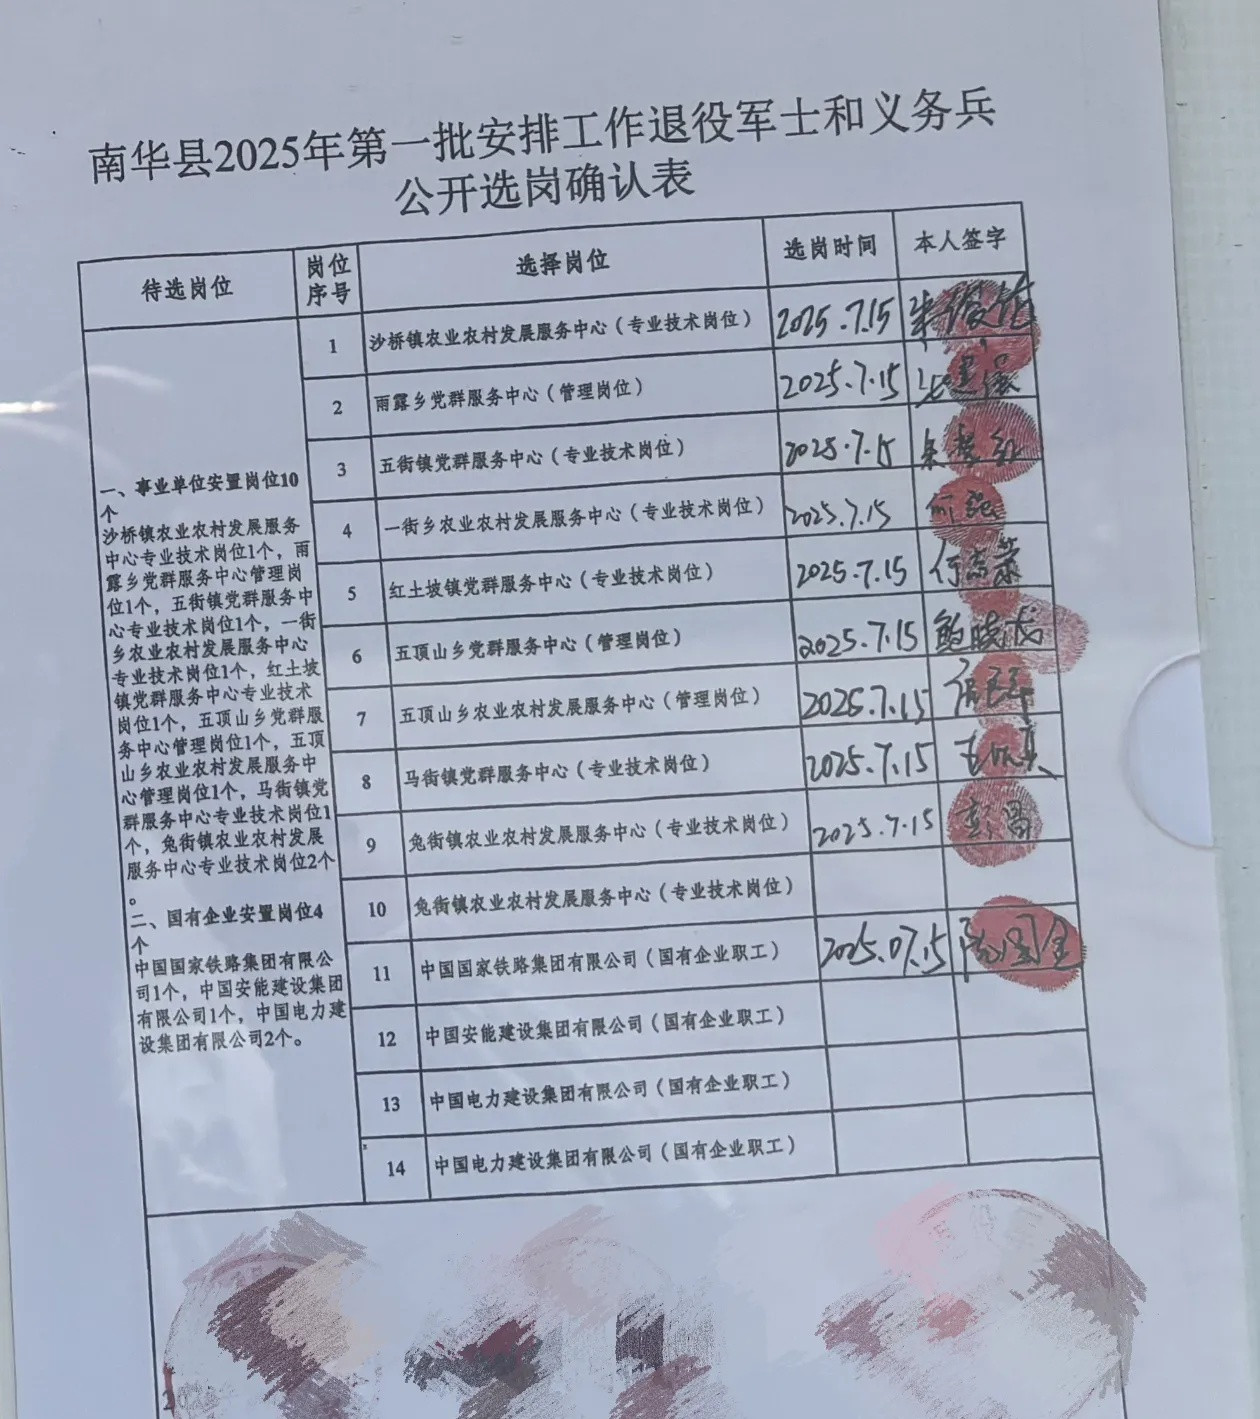 南华县2025年第一批安排工作退役军士和义务兵
公开选岗确认表
待选岗位
岗位
序号
选择岗位
选岗时间
本人签字
一、事业单位安置岗位10
个
沙桥镇农业农村发展服务
中心专业技术岗位1个，雨
露乡党群服务中心管理岗
位1个，五街镇党群服务中
心专业技术岗位1个，一街
乡农业农村发展服务中心
专业技术岗位1个，红土坡
镇党群服务中心专业技术
岗位1个，五顶山乡党群服
务中心管理岗位1个，五顶
山乡农业农村发展服务中
心管理岗位1个，马街镇党
群服务中心专业技术岗位1
个，兔街镇农业农村发展
服务中心专业技术岗位2个
。
二、国有企业安置岗位4
个
中国国家铁路集团有限公
司1个，中国安能建设集团
有限公司1个，中国电力建
设集团有限公司2个。
1 沙桥镇农业农村发展服务中心（专业技术岗位） 2025.7.15
2 雨露乡党群服务中心（管理岗位） 2025.7.15
3 五街镇党群服务中心（专业技术岗位） 2025.7.15
4 一街乡农业农村发展服务中心（专业技术岗位） 2025.7.15 何强
5 红土坡镇党群服务中心（专业技术岗位） 2025.7.15
6 五顶山乡党群服务中心（管理岗位） 2025.7.15
7 五顶山乡农业农村发展服务中心（管理岗位） 2025.7.15
8 马街镇党群服务中心（专业技术岗位） 2025.7.15
9 兔街镇农业农村发展服务中心（专业技术岗位） 2025.7.15
10 兔街镇农业农村发展服务中心（专业技术岗位）
11 中国国家铁路集团有限公司（国有企业职工） 2025.07.15
12 中国安能建设集团有限公司（国有企业职工）
13 中国电力建设集团有限公司（国有企业职工）
14 中国电力建设集团有限公司（国有企业职工）